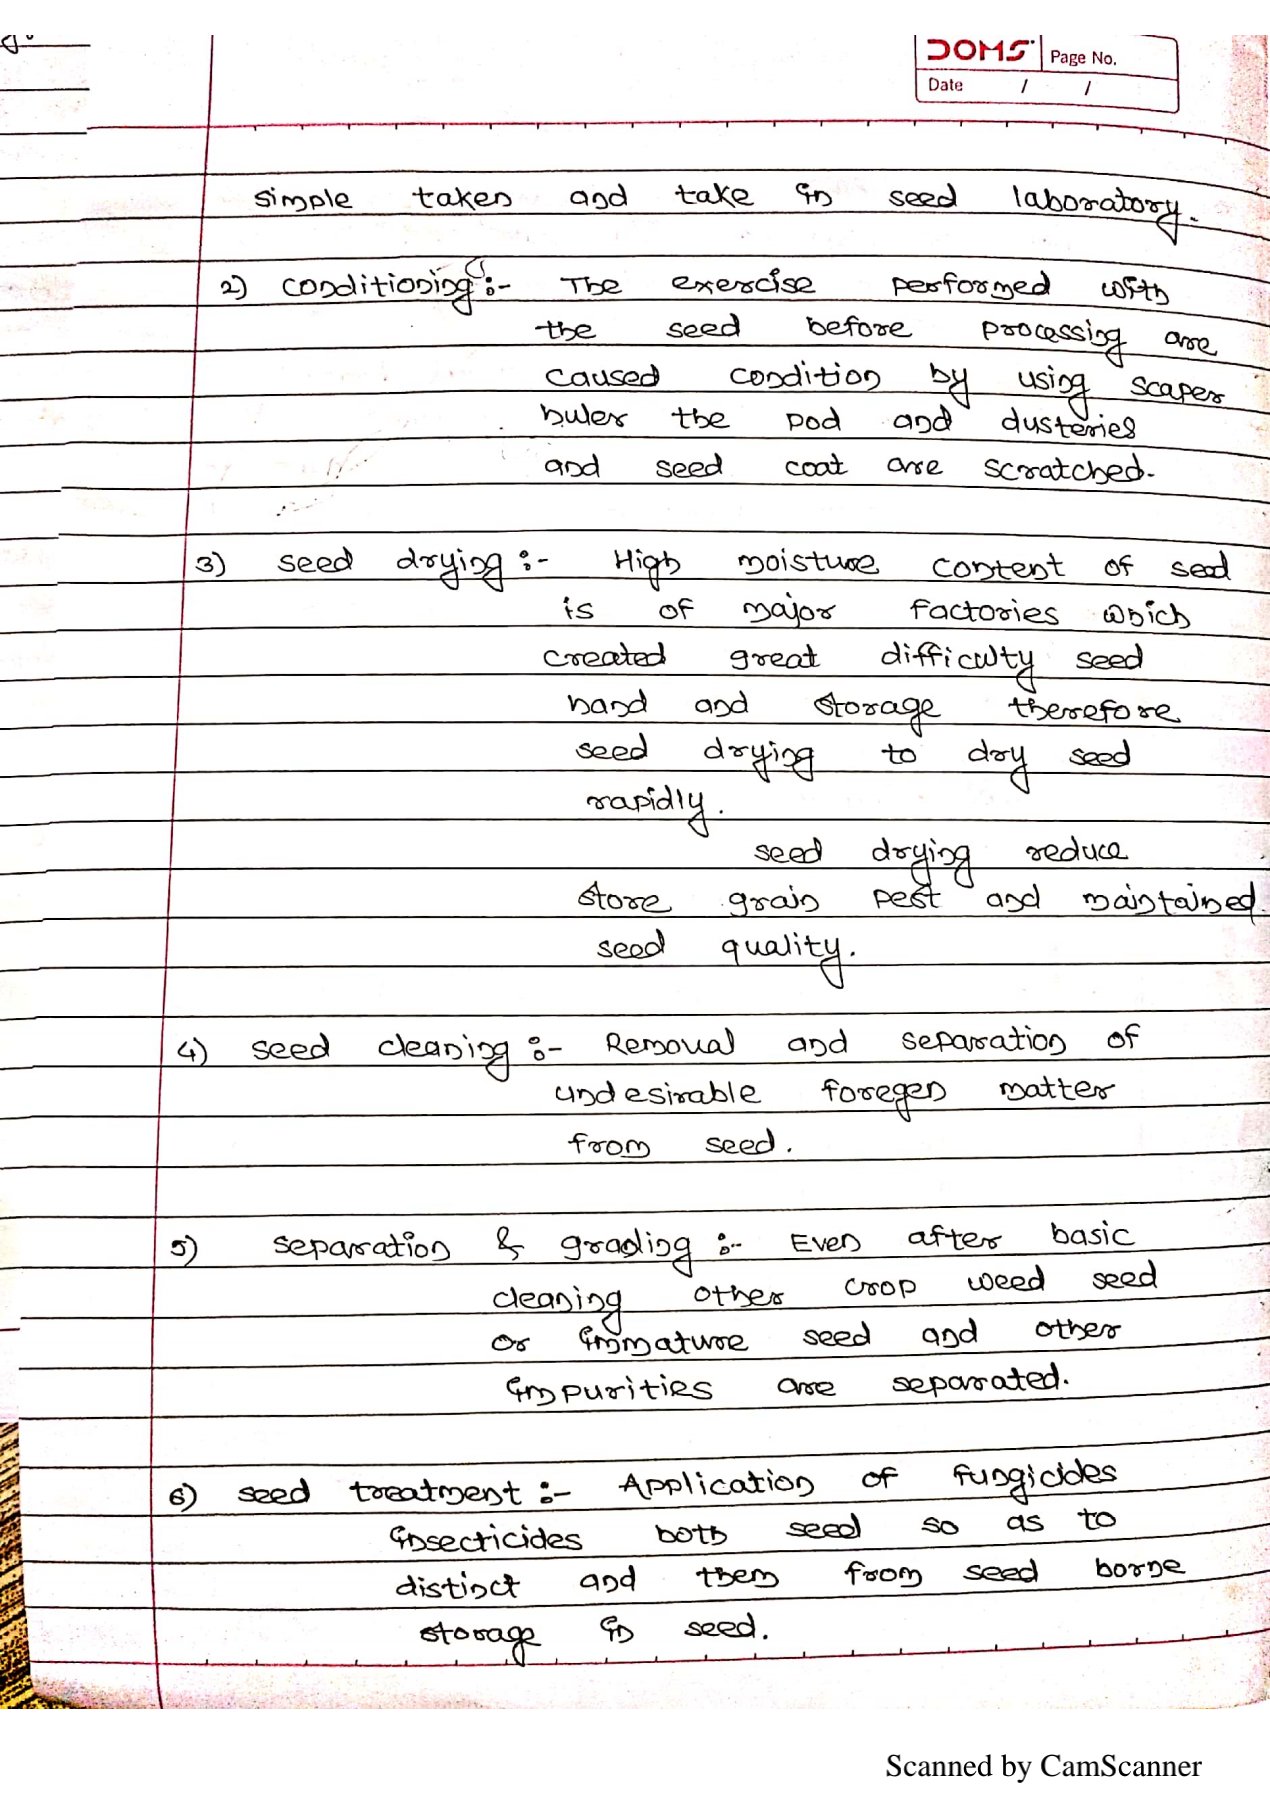 DOMS Page No.
Date / /
simple taken and take in seed laboratory.
2) conditioning :- The exercise performed with
the seed before processing are
caused condition by using scaper
huler the pod and dusteries
and seed coat are scratched.
3) seed drying :- High moisture content of seed
is of major factories which
created great difficulty seed
hand and storage therefore
seed drying to dry seed
rapidly.
seed drying reduce
store grain pest and maintained
seed quality.
4) seed cleaning :- Removal and separation of
undesirable foregen matter
from seed.
5) separation & grading :- Even after basic
cleaning other crop weed seed
or immature seed and other
impurities are separated.
6) seed treatment :- Application of fungicides
insecticides both seed so as to
distinct and them from seed borne
storage in seed.
Scanned by CamScanner